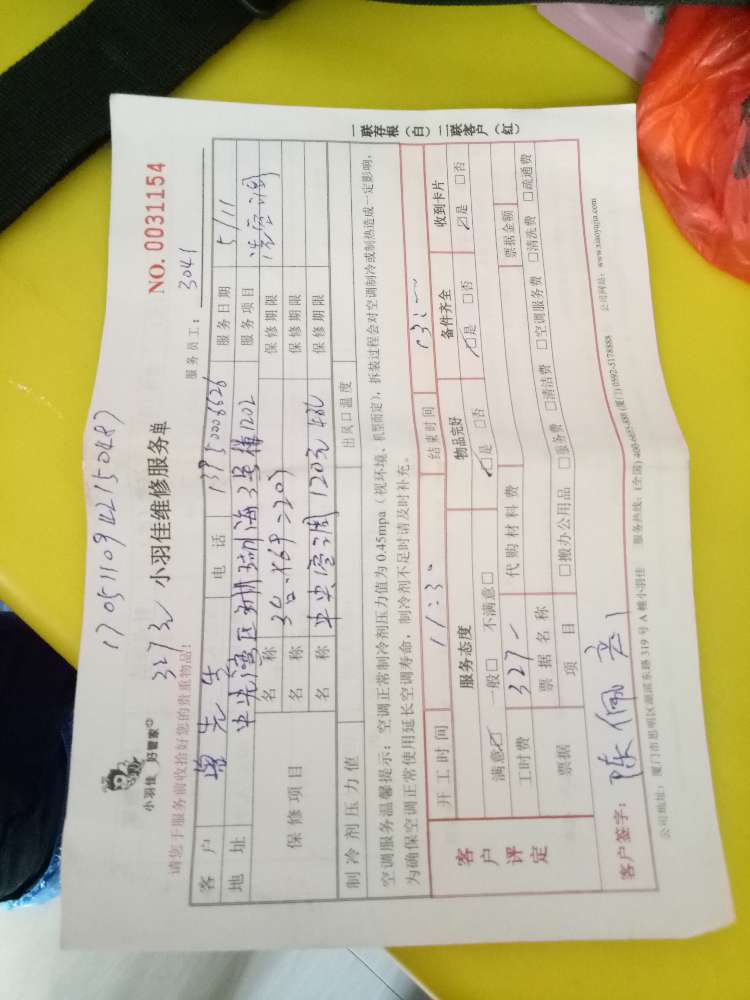 1705110942150487
327元 小羽佳维修服务单 NO. 0031154
小羽佳 好管家
请您于服务前收拾好您的贵重物品! 服务员工: 3041
客户 先生 电话 13950006626 服务日期 5/11
地址 中央湾区 海3号楼1202 服务项目 洗空调
保修项目 名称 3台×69=207 保修期限
名称 中央空调 120元 保修期限
名称 保修期限
制冷剂压力值 出风口温度
空调服务温馨提示:空调正常制冷剂压力值为 0.45mpa(视环境、机型而定),拆装过程会对空调制冷或制热造成一定影响,
为确保空调正常使用延长空调寿命,制冷剂不足时请及时补充。
客户评定 开工时间 11:30 结束时间 13:
服务态度 物品完好 备件齐全 收到卡片
满意☑ 一般□ 不满意□ ☑是 □否 ☑是 □否 ☑是 □否
工时费 327 代购材料费
票据 票据名称 票据金额
项目 □搬办公用品 □服务费 □清洁费 □空调服务费 □清洗费 □疏通费
客户签字: 陈
公司地址:厦门市思明区湖滨东路 319 号 A 幢小羽佳 服务热线:(全国) 400-665-888 (厦门) 0592-5178888 公司网站:www.xiaoyujia.com
一联存根(白) 二联客户(红)